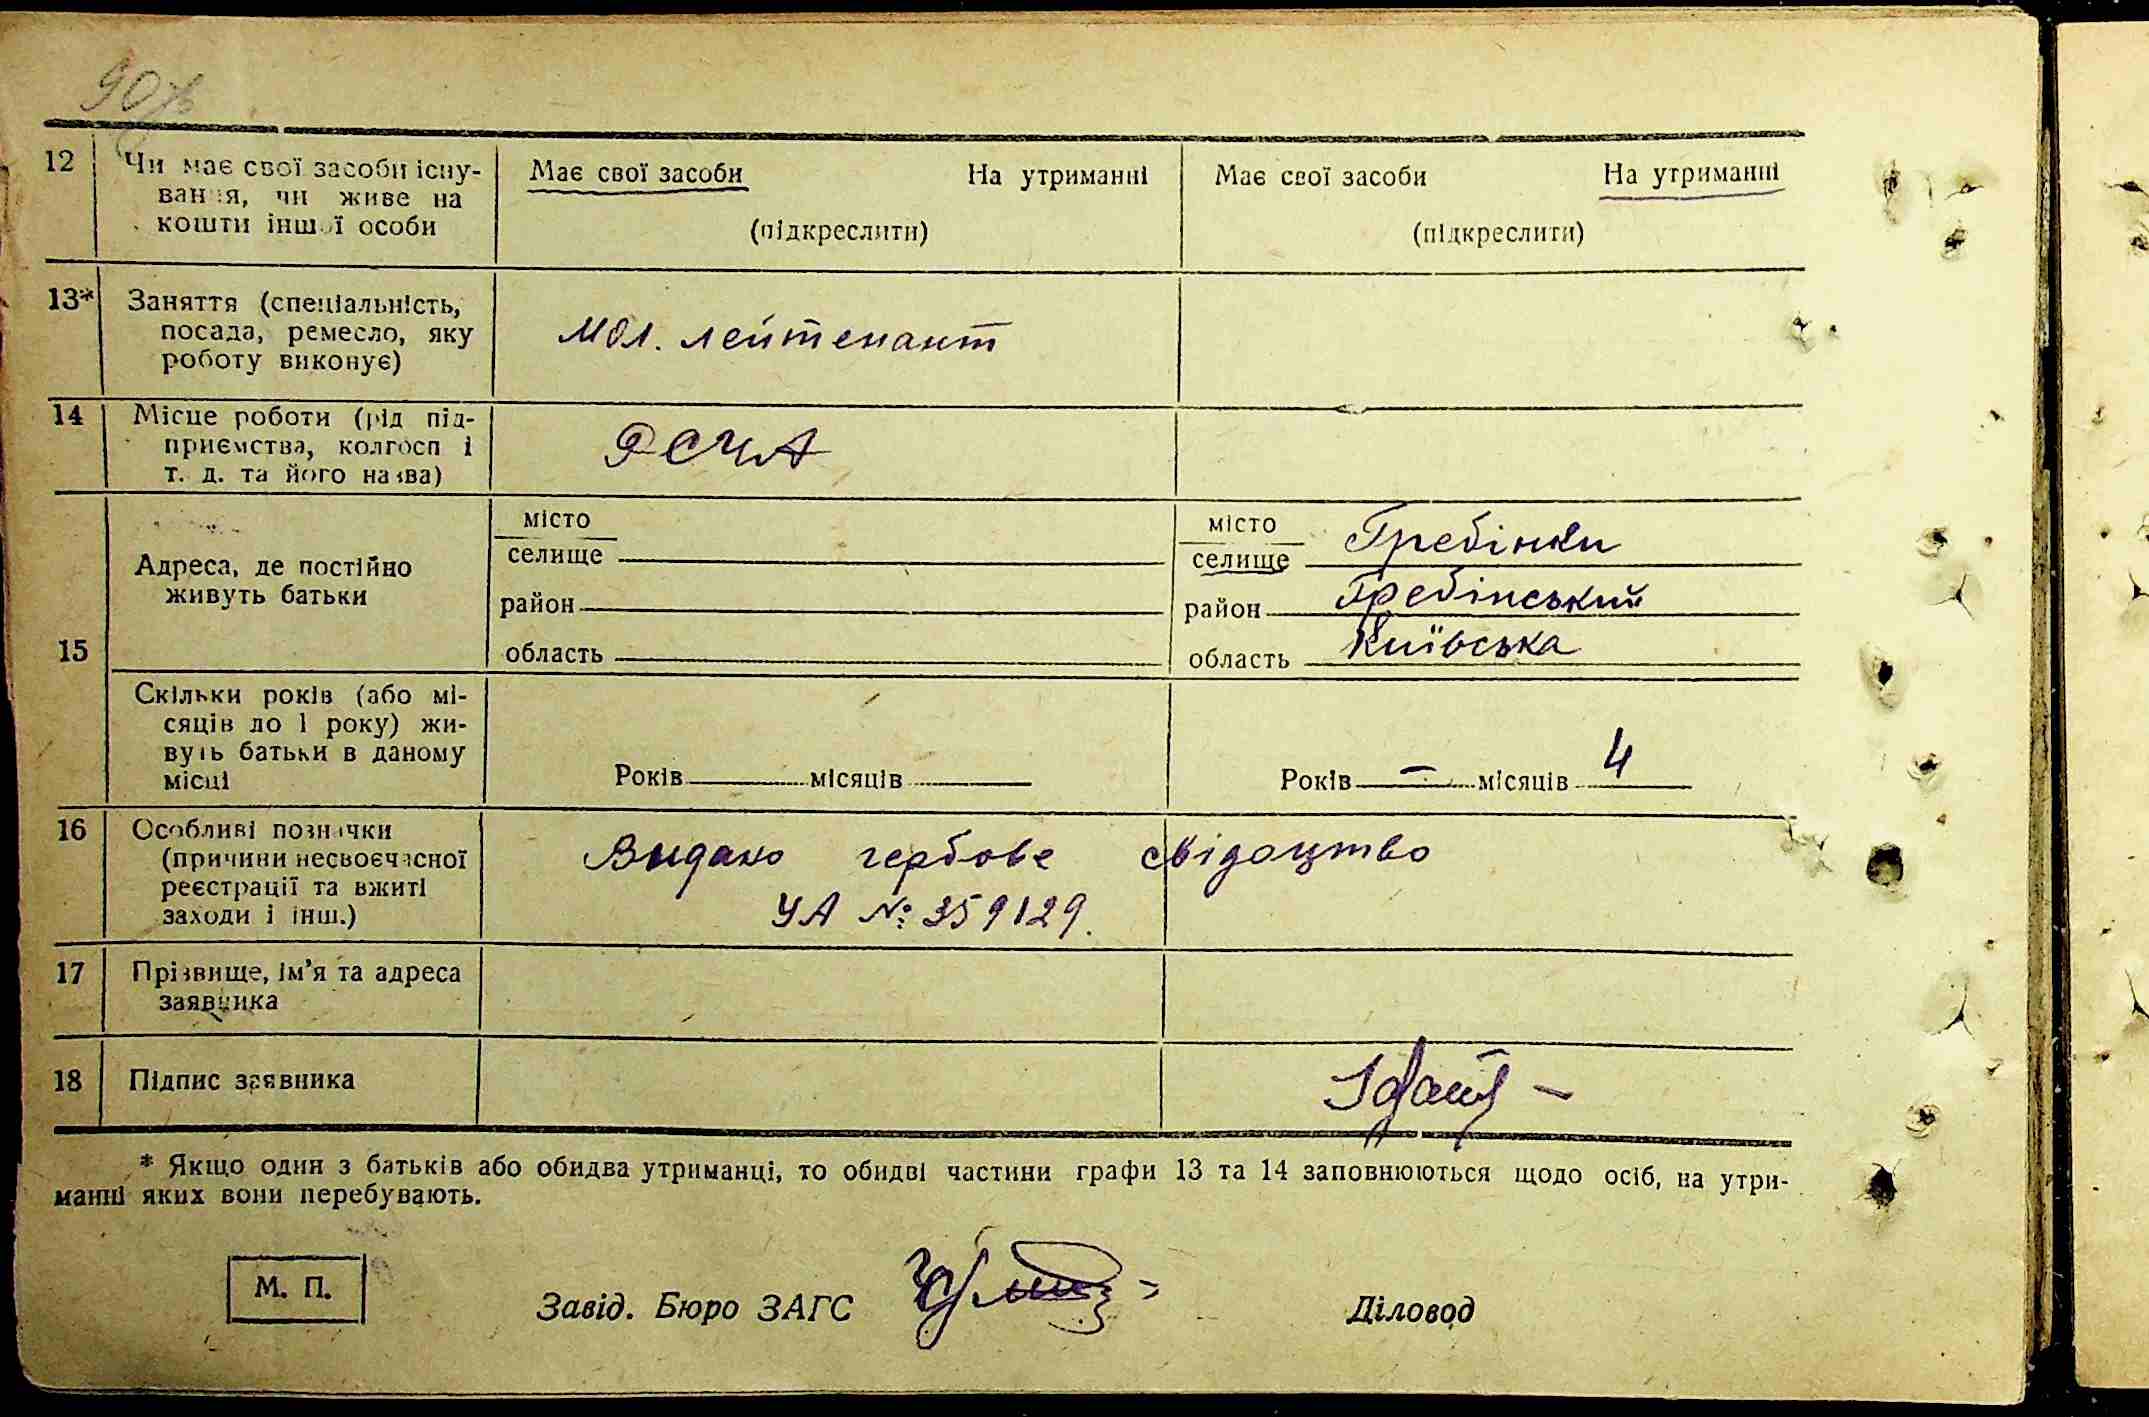 90
12 Чи має свої засоби існу-
вання, чи живе на
кошти іншої особи
Має свої засоби На утриманні
(підкреслити)
Має свої засоби На утриманні
(підкреслити)
13* Заняття (спеціальність,
посада, ремесло, яку
роботу виконує)
мол. лейтенант
14 Місце роботи (рід під-
приємства, колгосп і
т. д. та його назва)
РСЧА
15
Адреса, де постійно
живуть батьки
місто
селище
район
область
місто
селище Гребінки
район Гребінський
область Київська
Скільки років (або мі-
сяців до 1 року) жи-
вуть батьки в даному
місці
Років місяців
Років – місяців 4
16 Особливі позначки
(причини несвоєчасної
реєстрації та вжиті
заходи і інш.)
Видано гербове свідоцтво
УА № 359129.
17 Прізвище, ім'я та адреса
заявника
18 Підпис заявника
* Якщо один з батьків або обидва утриманці, то обидві частини графи 13 та 14 заповнюються щодо осіб, на утри-
манні яких вони перебувають.
М. П.
Завід. Бюро ЗАГС
Діловод